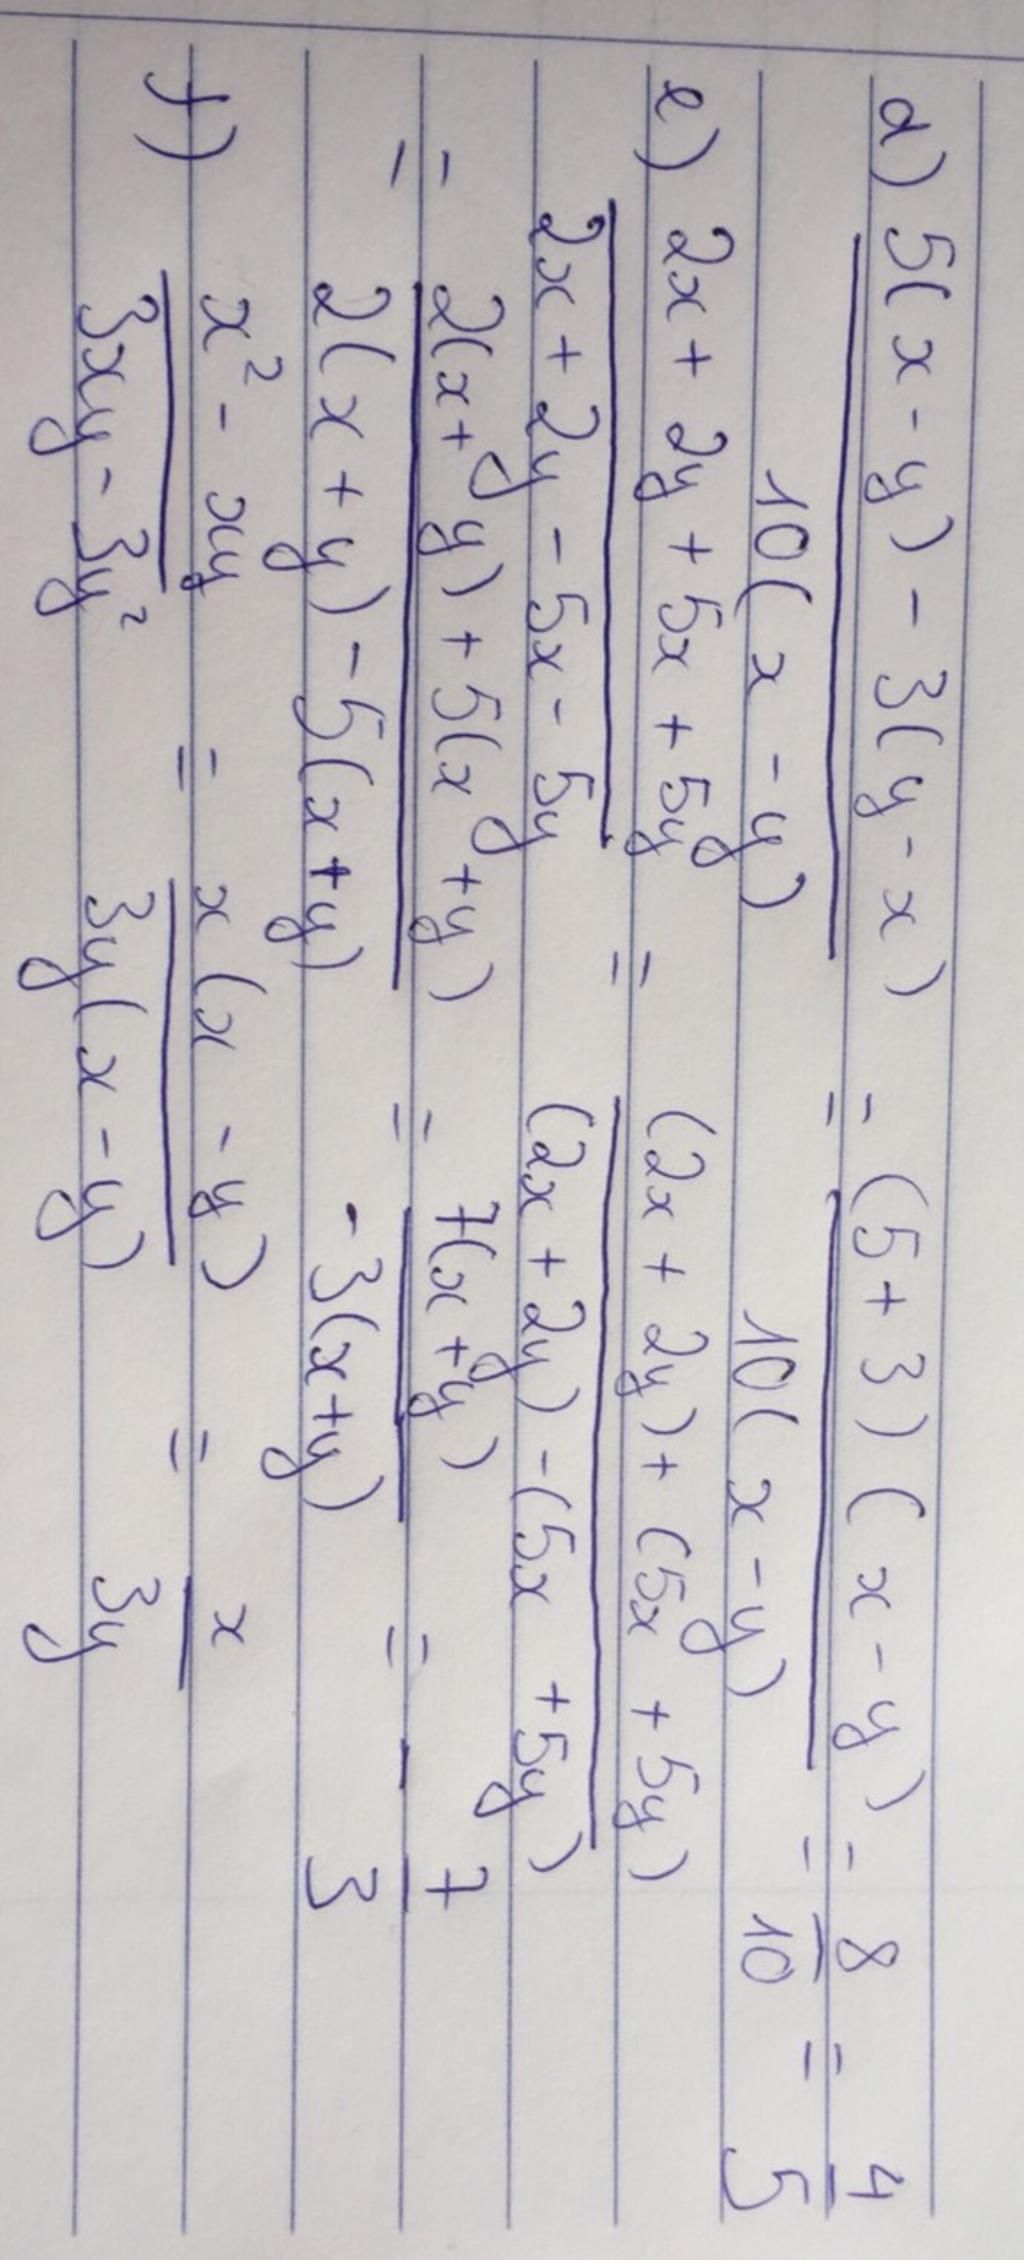 d) 5(x-y) - 3(y-x) / 10(x-y) = (5+3)(x-y) / 10(x-y) = 8/10 = 4/5
e) 2x + 2y + 5x + 5y / 2x + 2y - 5x - 5y = (2x + 2y) + (5x + 5y) / (2x + 2y) - (5x + 5y)
= 2(x+y) + 5(x+y) / 2(x+y) - 5(x+y) = 7(x+y) / -3(x+y) = - 7/3
f) x² - xy / 3xy - 3y² = x(x-y) / 3y(x-y) = x/3y